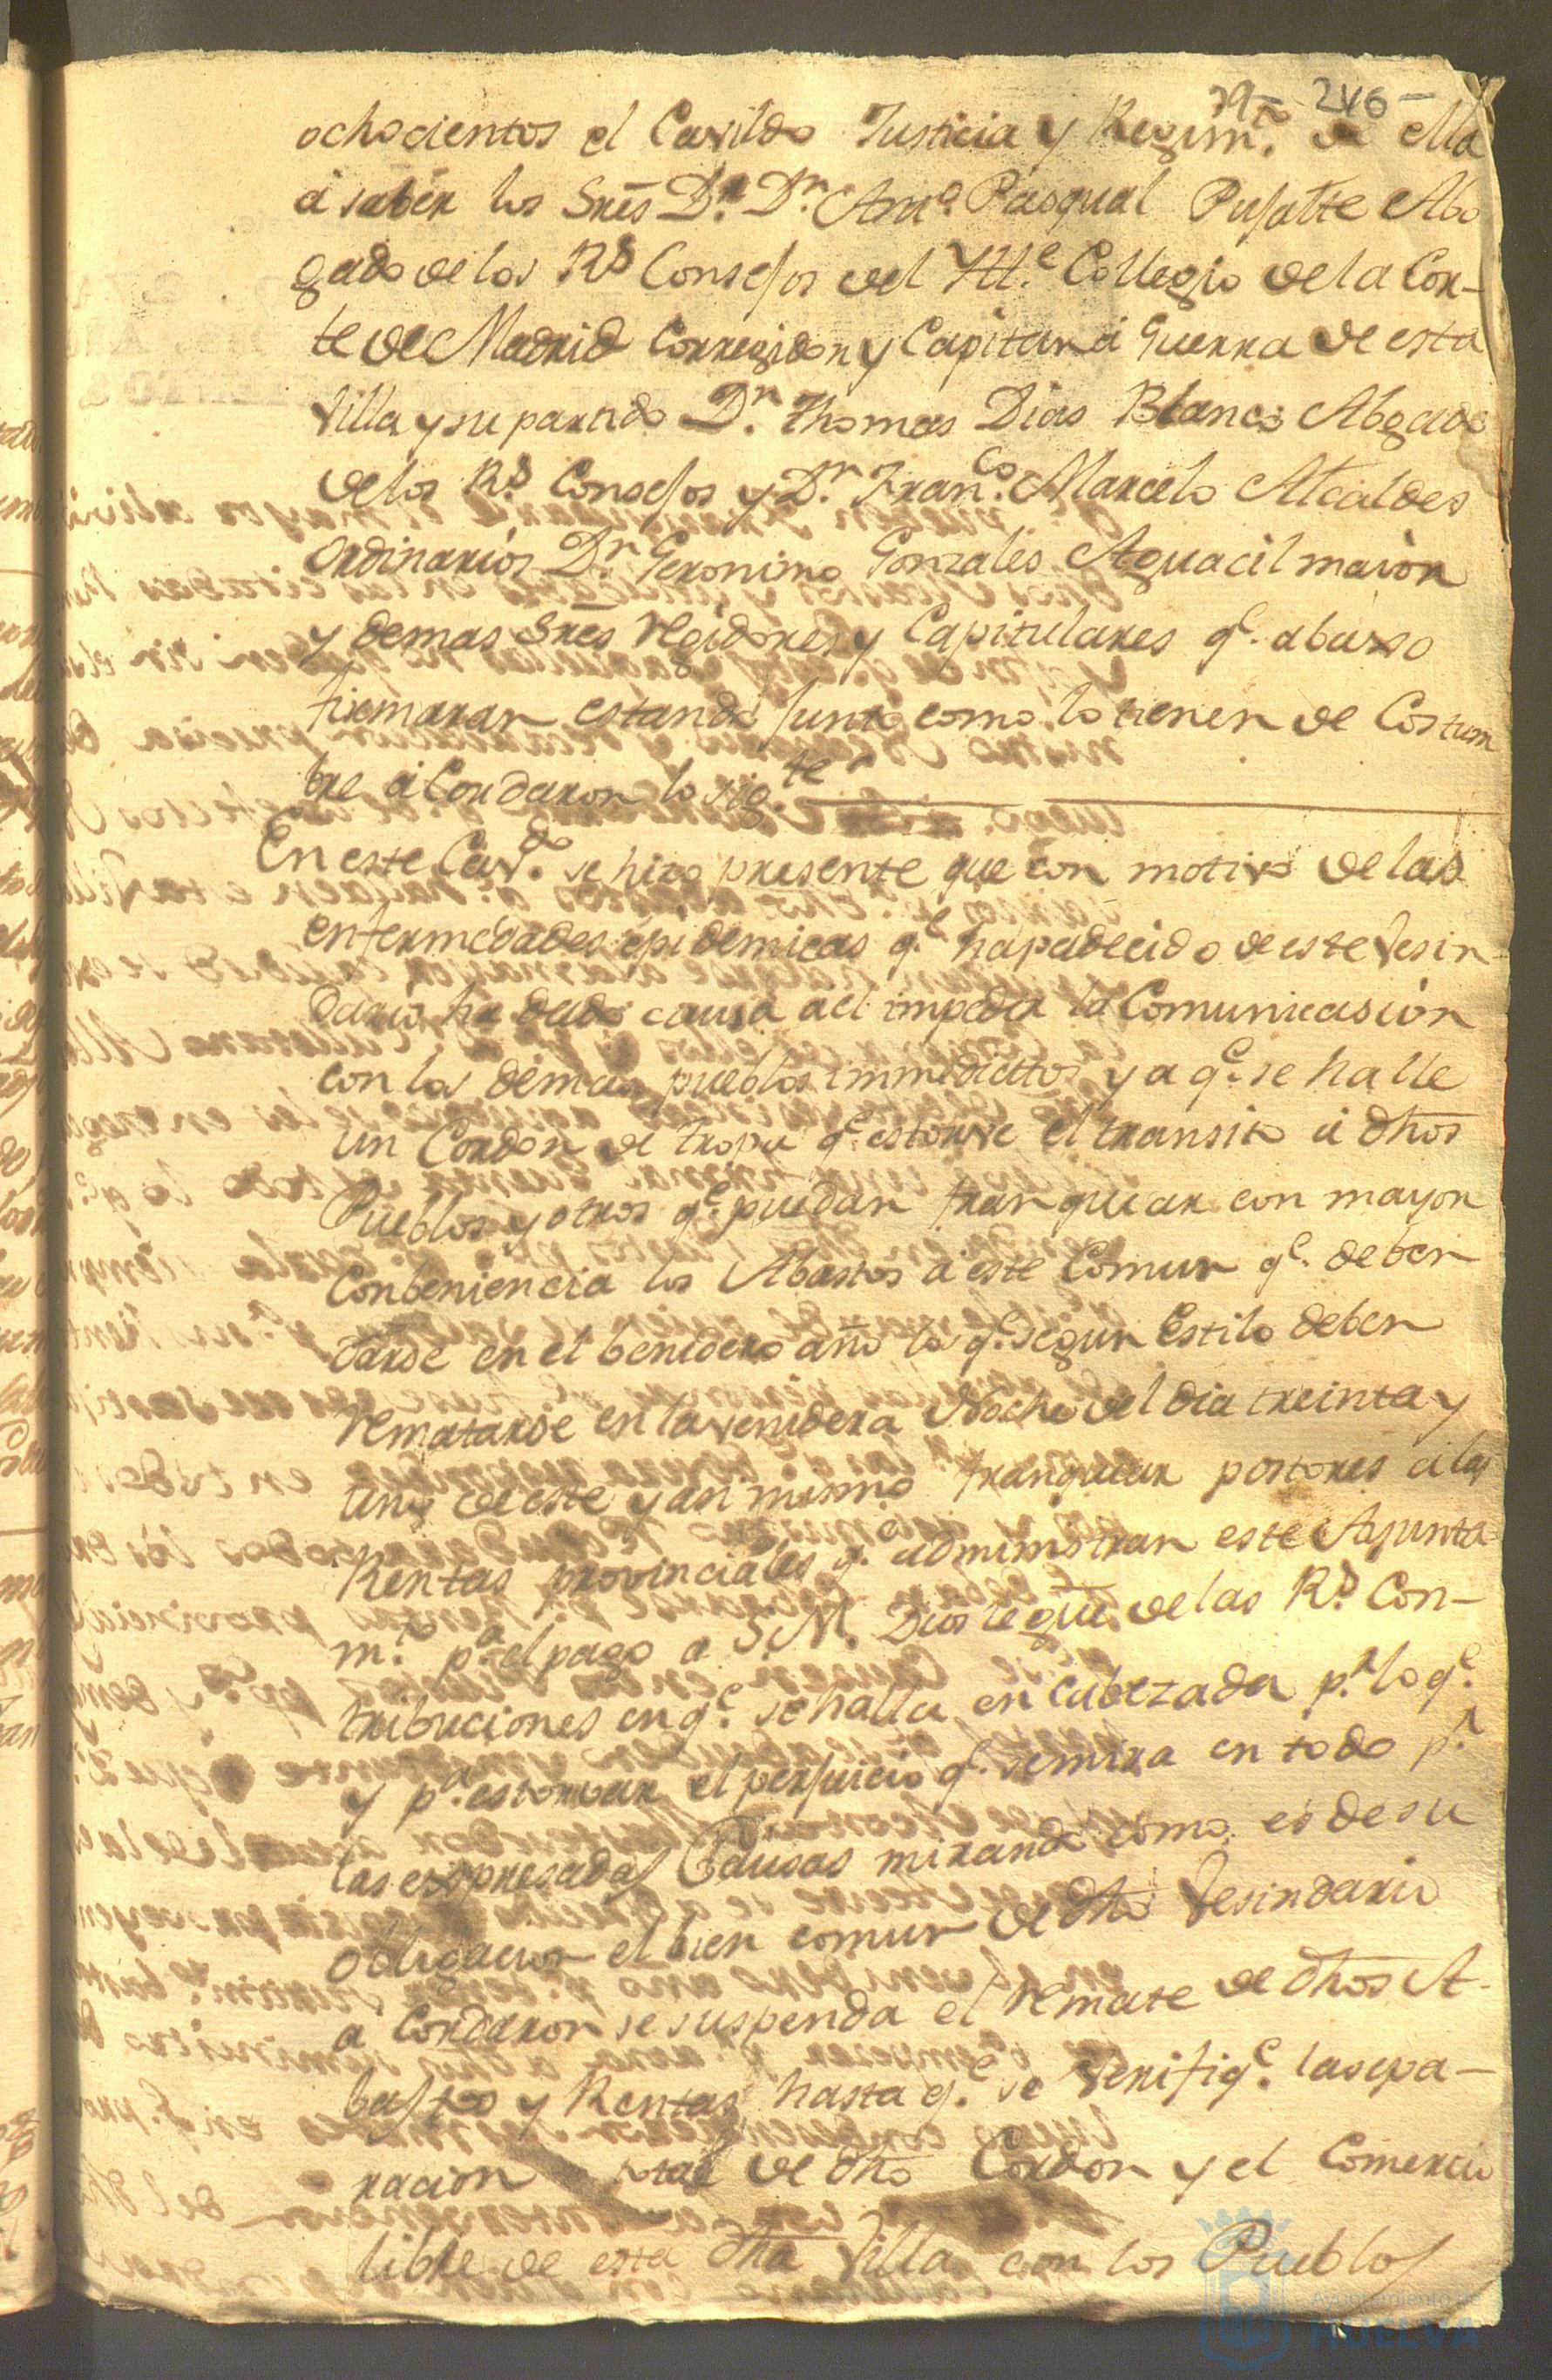 79 246
ochocientos el Cavildo Justicia y Regim.to de ella
á saber los Sres Dr. Dn. Antt.o Pasqual Pusalte Abo
gado de los Rs Consejos del Ylle. Collegio de la Cor-
te de Madrid Corregidor y Capitan á Guerra de esta
Villa y su partido Dn. Thomas Dias Blanco Abogado
de los Rs. Consejos y Dn. Franco. Marcelo Alcaldes
ordinarios Dn. Geronimo Gonzales Aguacil maior
y demas Sres Regidores y Capitulares qe. abaxo
firmaran estando junto como lo tienen de Costum
bre á Cordaron lo sigte.
En este Cavdo. se hizo presente que con motivo de las
enfermedades epidemicas qe ha padecido de este Vesin
dario ha dado causa a el impedir la Comunicasion
con los demas pueblos immediattos y a qe. se halle
un Cordon de tropa qe. estorve el transito á dhos
Pueblos y otros qe. puedan franquear con mayor
Conbeniencia los Abastos á este Comun qe. deben
darse en el benidero año lo qe. segun Estilo deben
rematarse en la venidera Noche del dia treinta y
uno de este y asi mismo franquear postores a las
Rentas provinciales qe. administran este Ayunta
mto. pa. el pago a S. M. Dios le gue. de las Rs. Con-
tribuciones en qe. se halla en cabezada pr. lo qe.
y pa. estorvar el perjuicio qe. se mira en todo pr.
las expresadas Causas mirando como es de su
obligacion el bien comun de dho Vesindario
á Cordaron se suspenda el remate de dhos A-
bastos y Rentas hasta qe. se verifiqe. la sepa-
racion total de dho Cordon y el Comercio
libre de esta dha Villa con los Pueblos
Ayuntamiento de
HUELVA